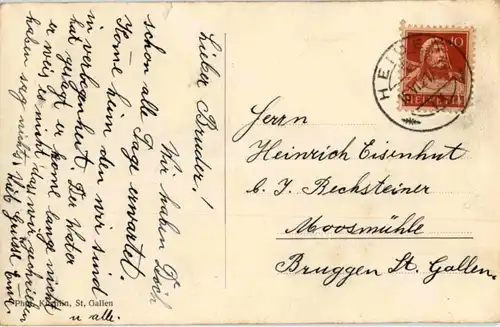 Lieber Bruder!
Wir haben Dich
schon alle Tage erwartet.
Kome heim den wir sind
in verlegenheit. Der Vater
hat gesagt er kome lange nicht
er weis es nicht das wir geschrieben
haben sag nichts. Viele Grüsse Eure
u alle.
Phot. St. Gallen
HEIDEN
10
HELVETIA
Herrn
Heinrich Eisenhut
b. J. Rechsteiner
Moosmühle
Bruggen St. Gallen.